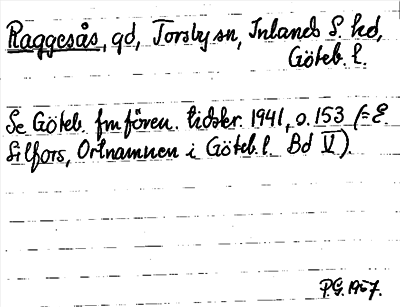 Raggesås, gd, Torsby sn, Inlands S. hd,
Göteb. l.
Se Göteb. fmfören. tidskr. 1941, s. 153 (= E.
Silfors, Ortnamnen i Göteb. l. Bd V).
P.G. 1957.